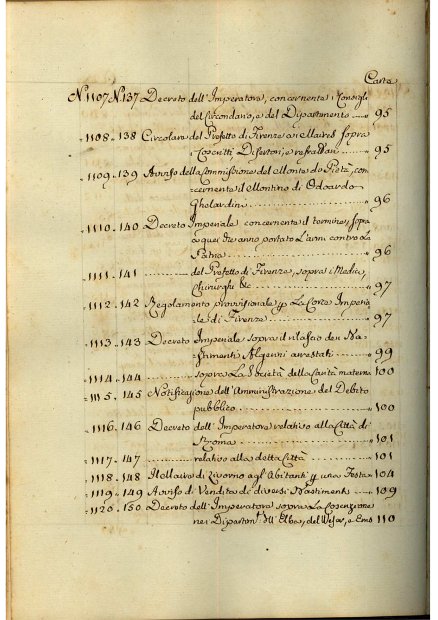 Carta
N. 1107 N. 137 Decreto dell'Imperatore, concernente i Consigli
del Circondario, e del Dipartimento 95
1108 . 138 Circolare del Prefetto di Firenze ai Maires sopra
i Coscritti Disertori, e refrattari 95
1109 . 139 Avviso della Commissione del Monte de Pietà, con
cernente il Montino di Odoardo
Gherardini 96
1110 . 140 Decreto Imperiale concernente il termine, sopra
a quei che anno portato l'armi contro la
Patria 96
1111 . 141 del Prefetto di Firenze, sopra i Medici,
Chirurghi &c 97
1112 . 142 Regolamento provvisionale p. La Corte Imperia
le di Firenze 97
1113 . 143 Decreto Imperiale sopra il rilascio dei Ba
stimenti Algerini arrestati 99
1114 . 144 sopra La Società della Carità materna 100
1115 . 145 Notificazione dell'Amministrazione del Debito
pubblico 100
1116 . 146 Decreto dell'Imperatore relativo alla Città di
Roma 101
1117 . 147 relativo alla detta Città 101
1118 . 148 Il Maire di Livorno agl'Abitanti p. una Festa 104
1119 . 149 Avviso di Vendita di diversi Bastimenti 109
1120 . 150 Decreto dell'Imperatore sopra La Coscrizione
nei Dipartim.ti dell'Elba, del Weser, e Ems 110